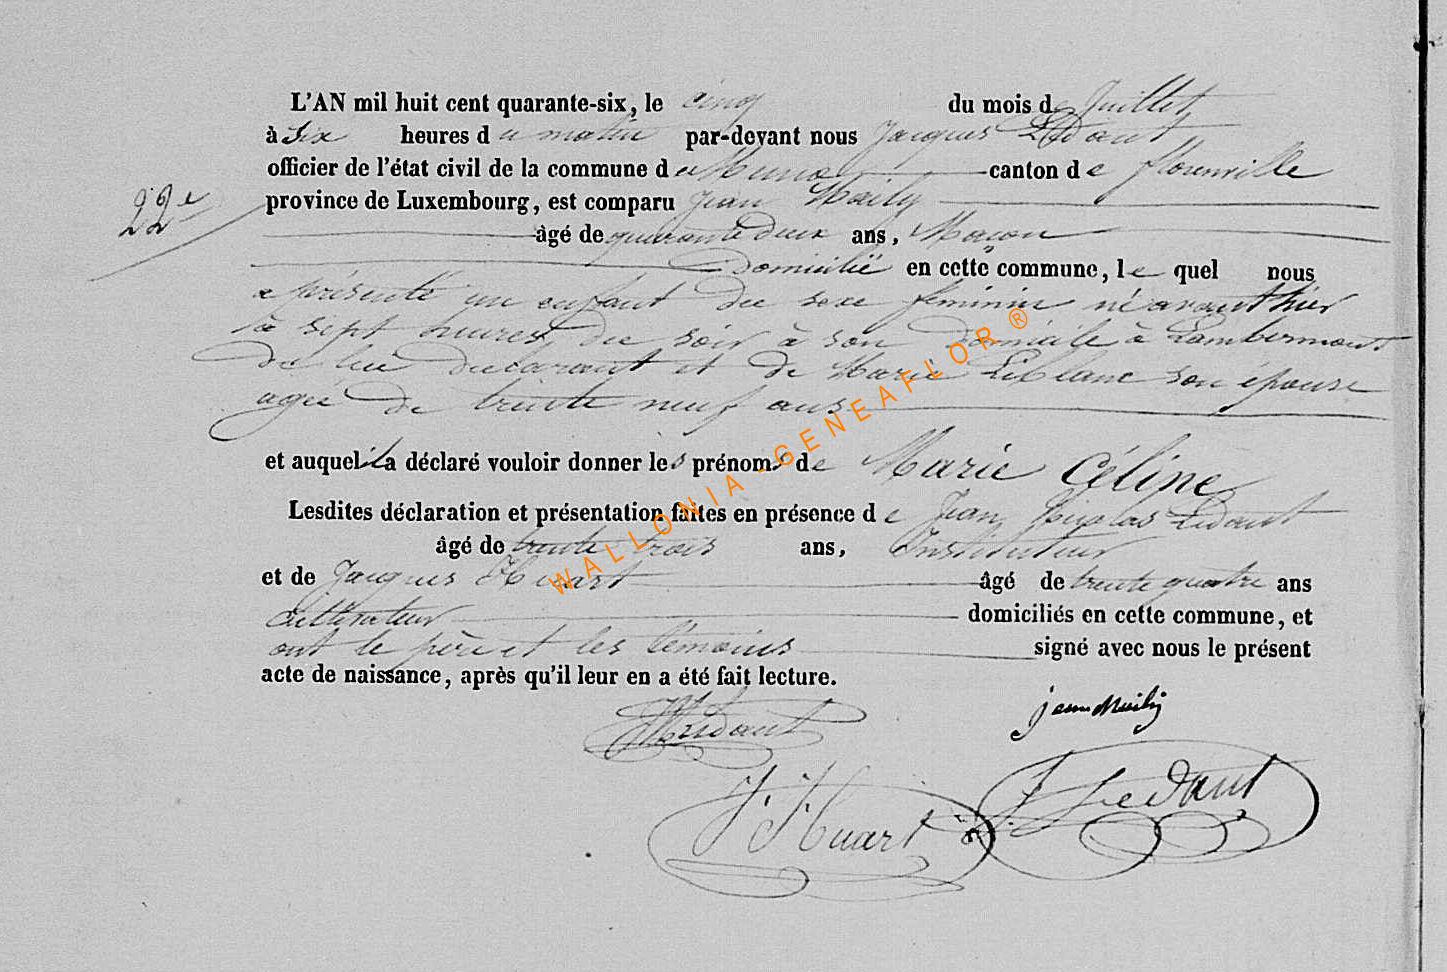 L'AN mil huit cent quarante-six, le cinq du mois de Juillet
à six heures du matin par-devant nous Jacques Ledant
officier de l'état civil de la commune de Muno canton de florenville
22e
province de Luxembourg, est comparu Jean Maily
âgé de quarante deux ans, Maçon
Domicilié en cette commune, le quel nous
a présenté un enfant du sexe féminin né avant hier
à sept heures du soir à son domicile à Lambermont
de lui déclarant et de Marie Leblanc son épouse
agée de trente neuf ans
et auquel il a déclaré vouloir donner les prénoms de Marie Céline
Lesdites déclaration et présentation faites en présence de Jean Nicolas Ledant
âgé de trente trois ans, Instituteur
et de Jacques Huart âgé de trente quatre ans
Cultivateur domiciliés en cette commune, et
ont le père et les témoins signé avec nous le présent
acte de naissance, après qu'il leur en a été fait lecture.
jean Maily
Ledant
J. Huart
J. Ledant
WALLONIA-GENEAFLOR ®